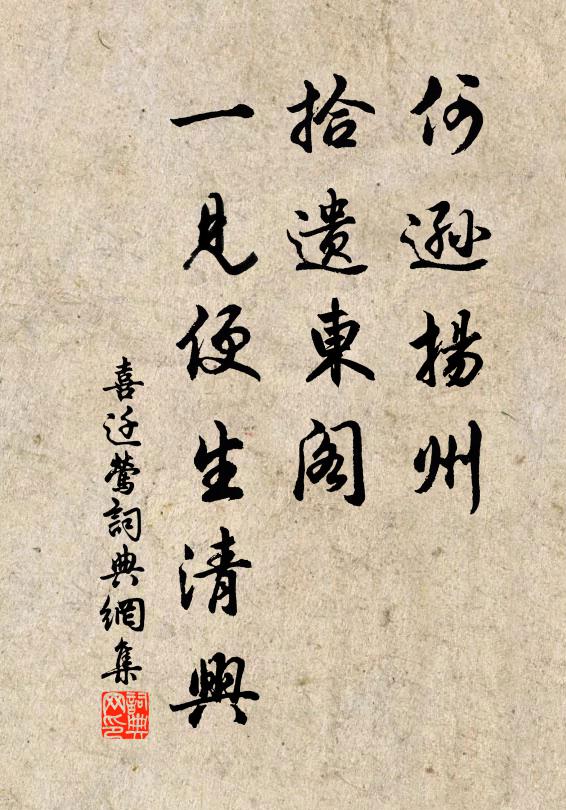 何遜揚州
拾遺東閣
一見便生清興
喜迁鶯詞典網集
詞典网印